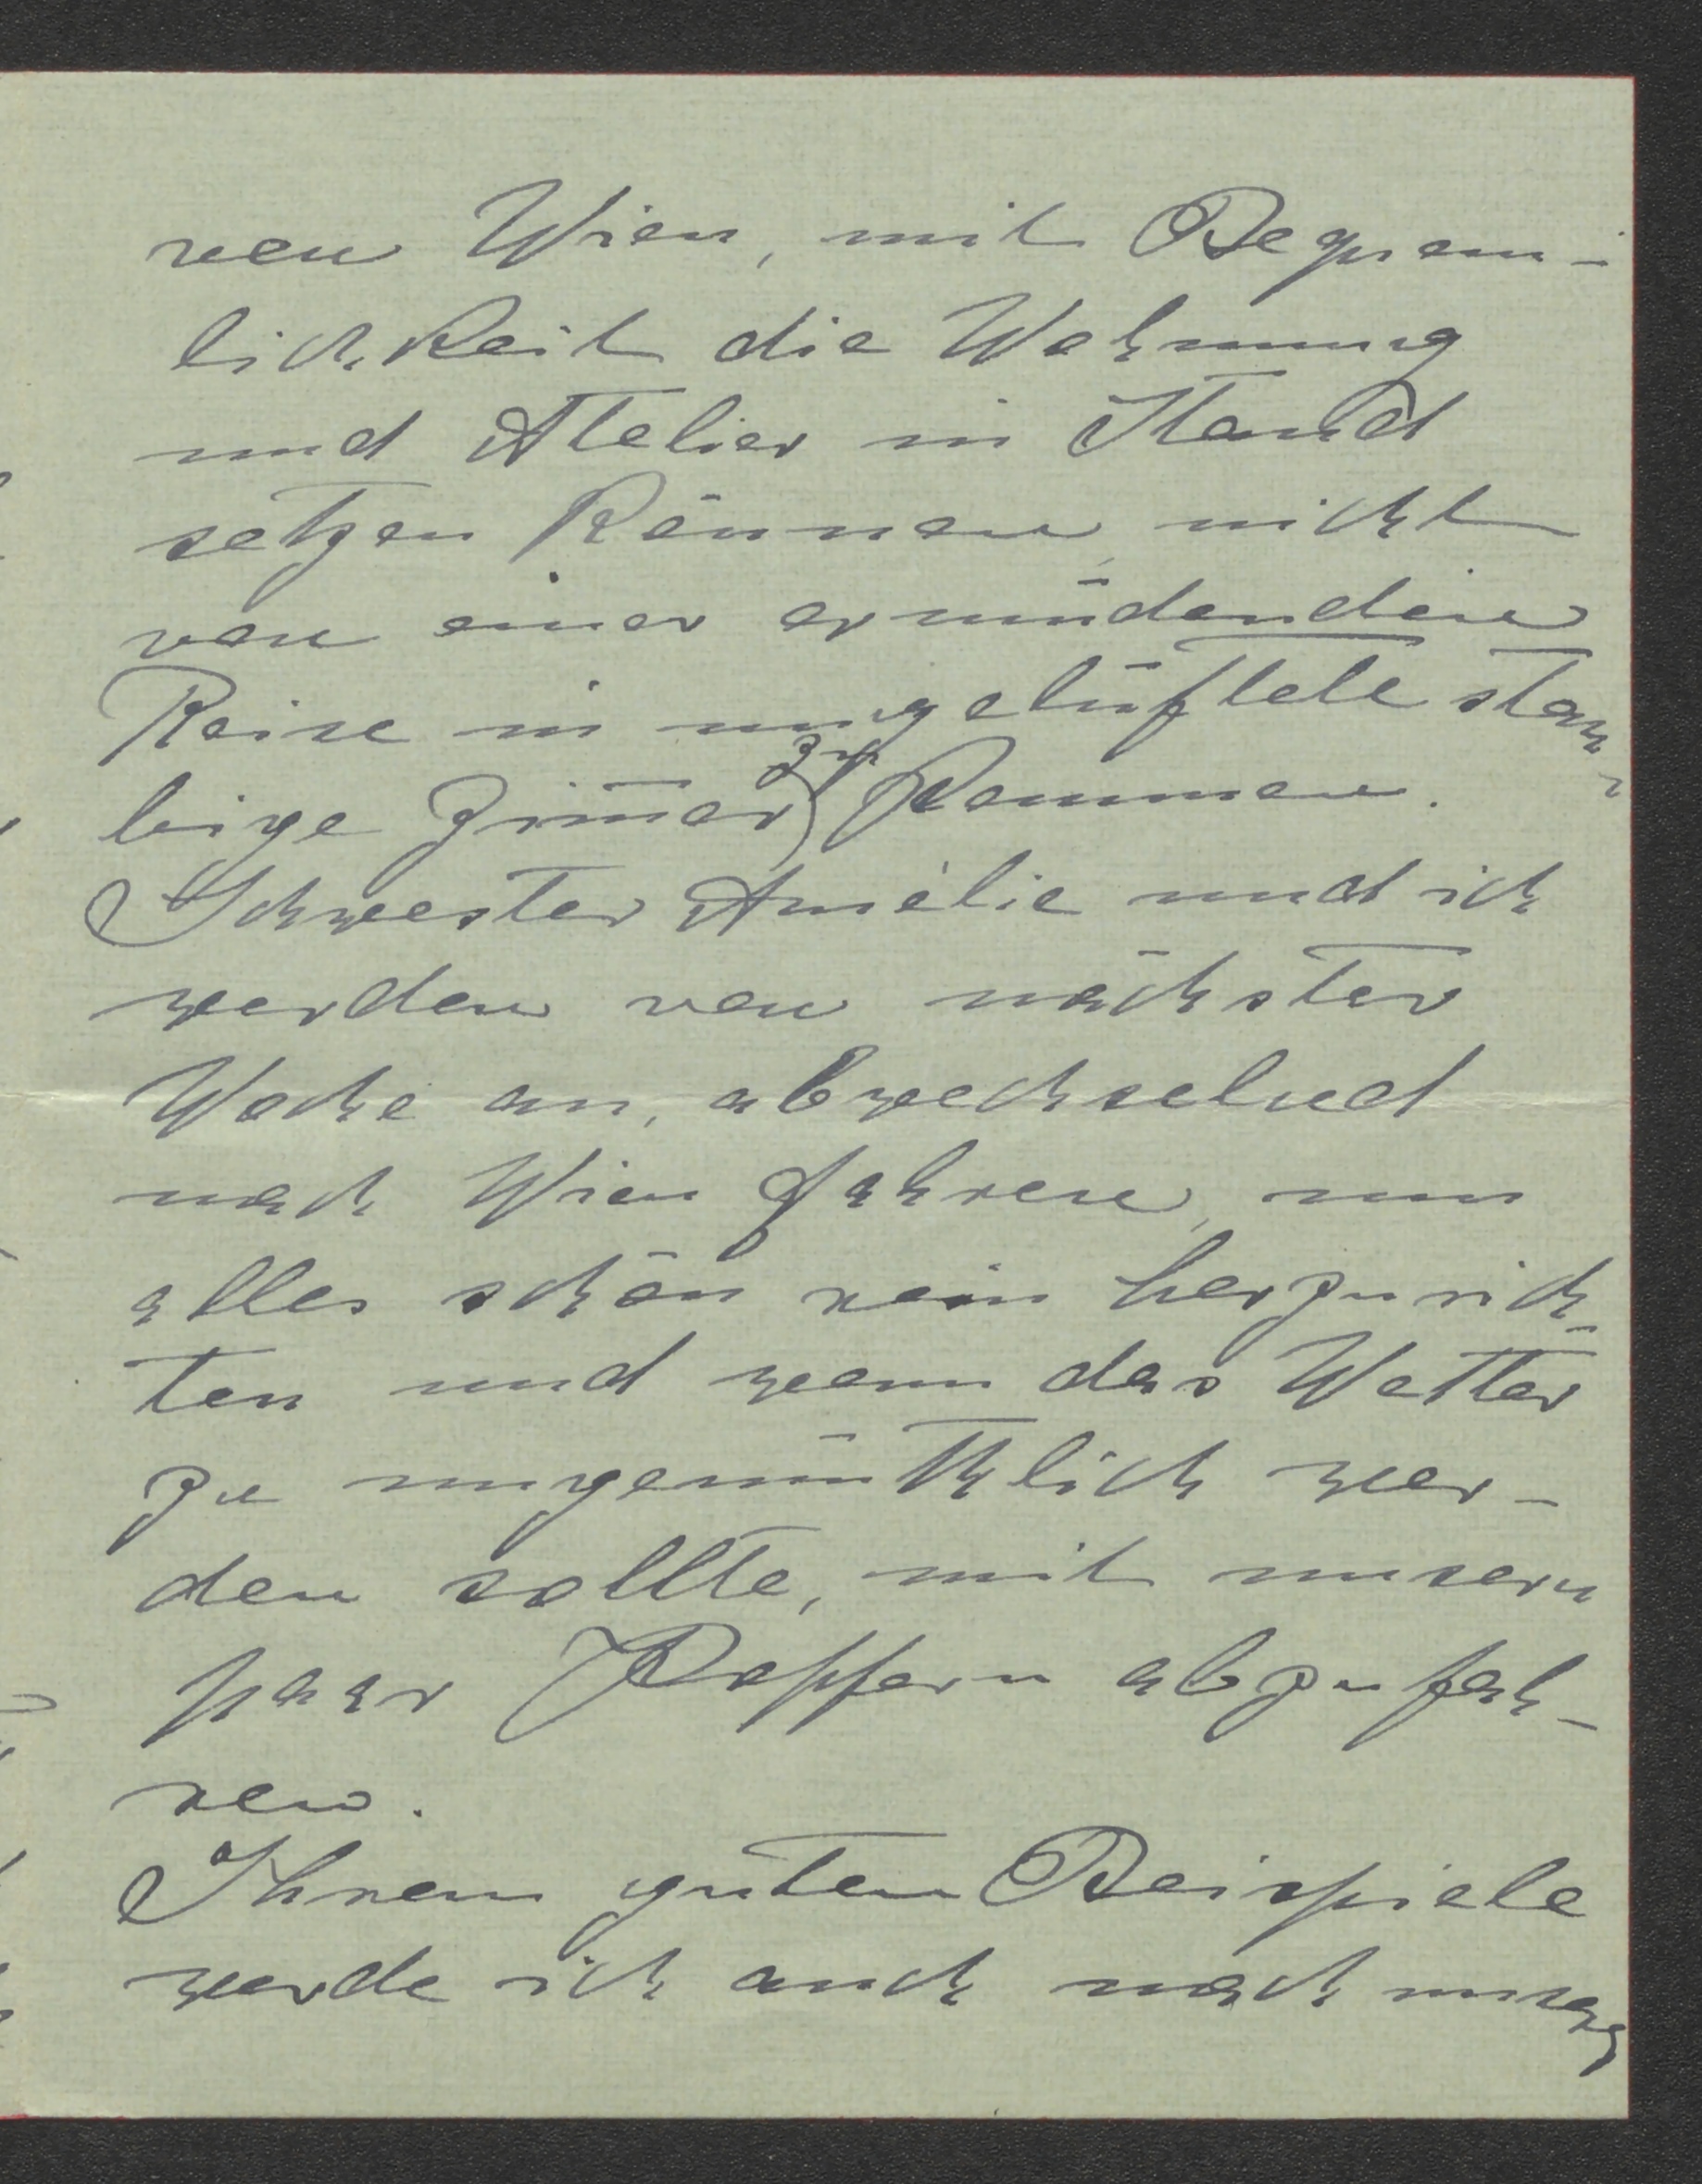 von Wien, mit Bequem-
lichkeit die Wohnung
und Atelier in Stand
setzen können, nicht
von einer ermüdenden
Reise in ungelüftete stau-
bige Zimmer zu kommen.
Schwester Amélie und ich
werden von nächster
Woche an, abwechselnd
nach Wien fahren, um
alles schön rein herzurich-
ten und wenn das Wetter
zu ungemüthlich wer-
den sollte, mit unsern
paar Koffern abzufah-
ren.
Ihrem guten Beispiele
werde ich auch nach